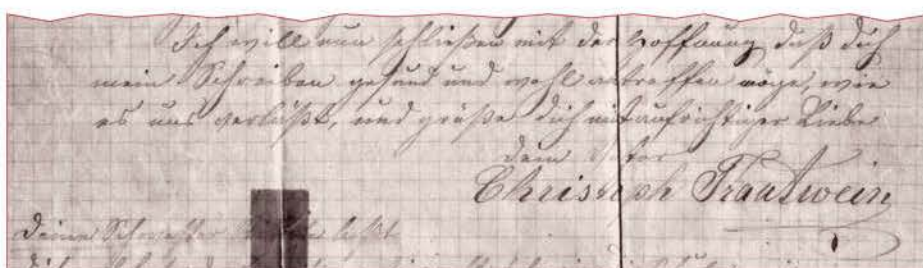 Ich will nun schließen mit der Hoffnung daß dich
mein Schreiben gesund und wohl antreffen möge, wie
es uns verläßt, und grüße dich mit aufrichtiger Liebe
dein Vater
Christoph Trautwein
Deine Schwester läßt